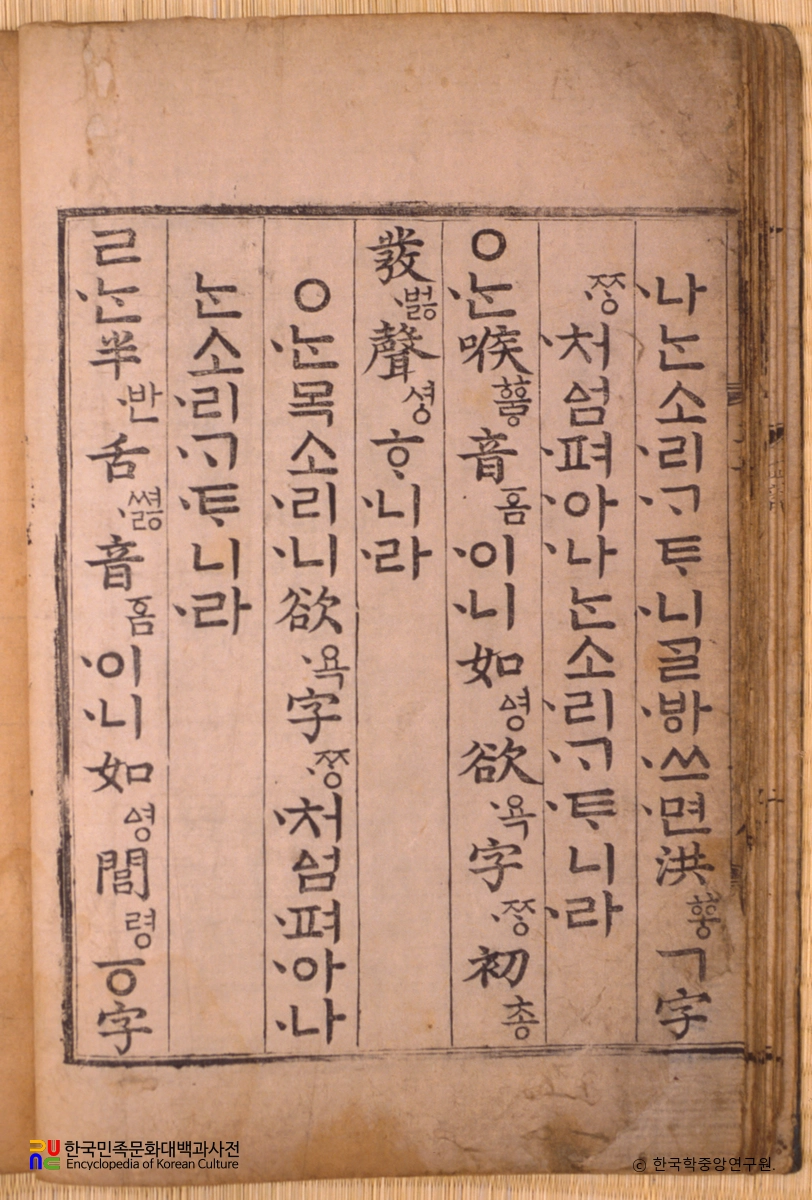 ·나ᄂᆞᆫ소·리·ᄀᆞᄐᆞ·니ᄀᆞᆯ·ᄫᅡ·쓰·면洪ᅘᅩᇰㄱ字
·ᄍᆞᆼ·처ᅀᅥᆷ·펴·아·나ᄂᆞᆫ소·리·ᄀᆞ·ᄐᆞ니·라
ㅇ·ᄂᆞᆫ喉ᅘᅮᇢ音ᅙᅳᆷ·이·니如ᅀᅧᆼ欲·욕字·ᄍᆞᆼ初총
發·벓聲셩ᄒᆞ·니·라
ㅇ·ᄂᆞᆫ목소·리·니欲·욕字·ᄍᆞᆼ·처ᅀᅥᆷ·펴·아·나
ᄂᆞᆫ소·리·ᄀᆞ·ᄐᆞ니·라
ㄹ·ᄂᆞᆫ半·반舌·쎠ᇙ音ᅙᅳᆷ·이·니如ᅀᅧᆼ閭령ㆆ字
한국민족문화대백과사전
Encyclopedia of Korean Culture
© 한국학중앙연구원.